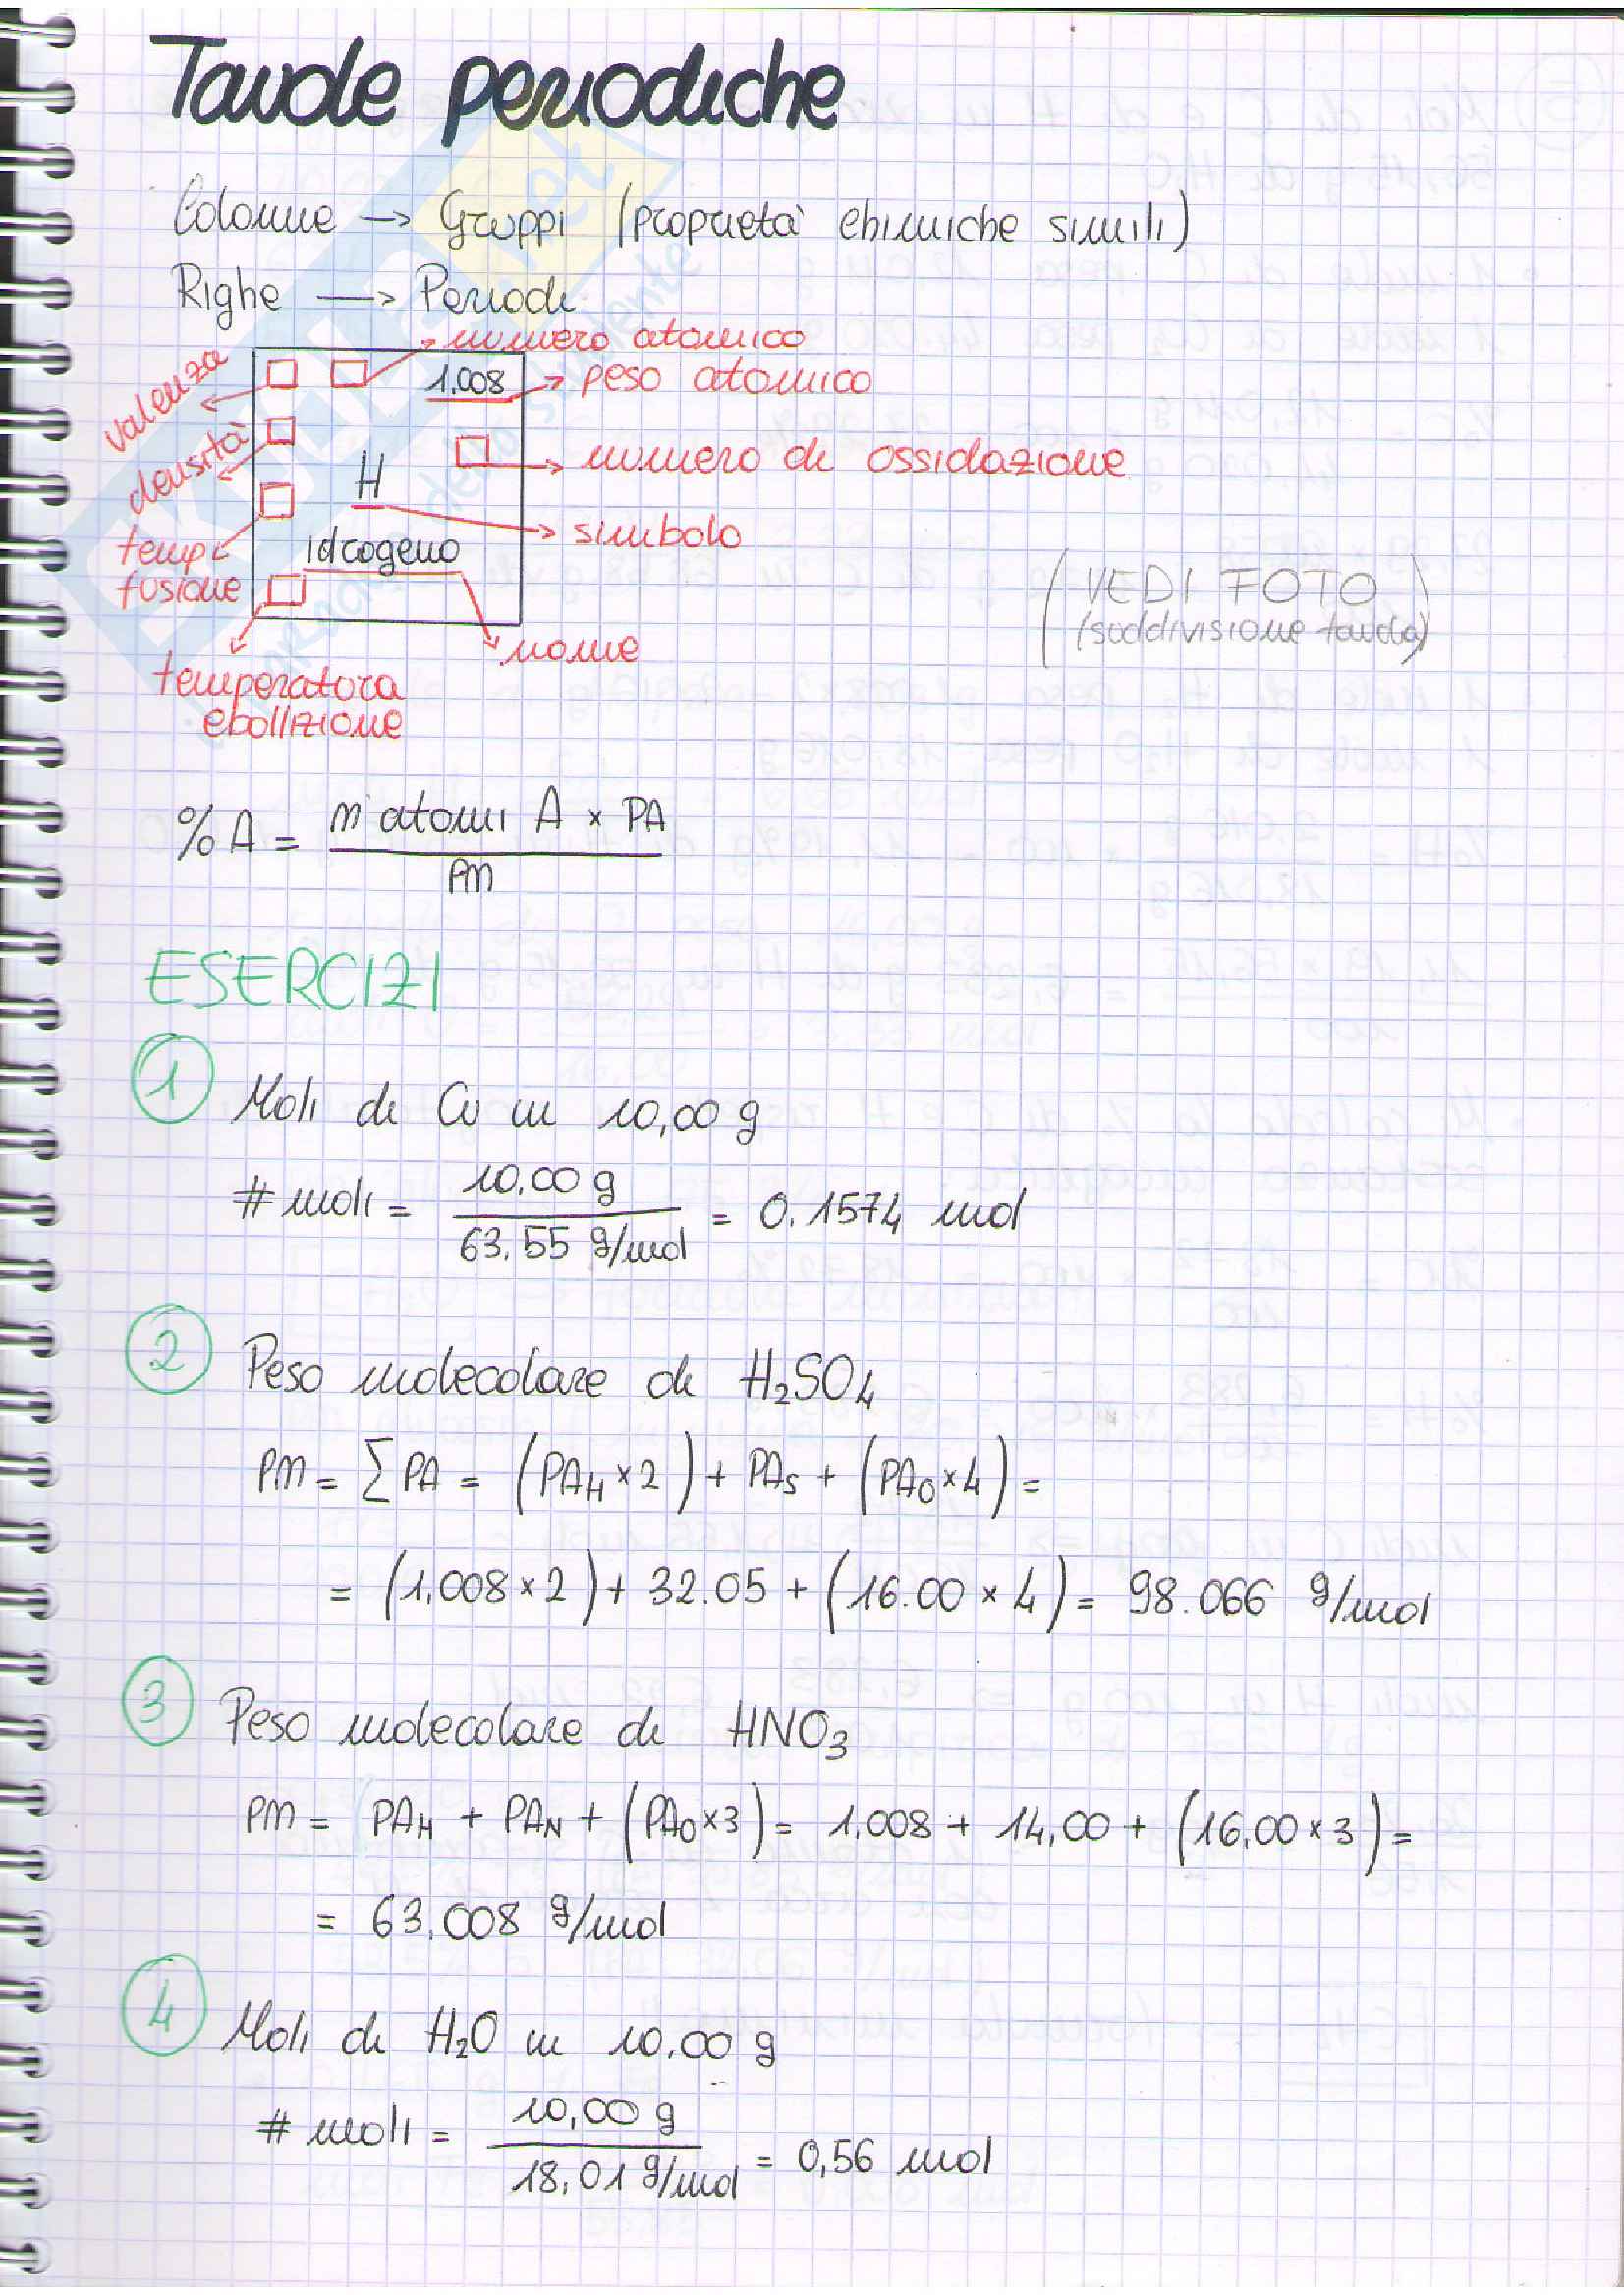 Tavole periodiche
Colonne → Gruppi (proprietà chimiche simili)
Righe → Periodi
numero atomico
valenza
1.008 → peso atomico
densità
numero di ossidazione
H
simbolo
temp
fusione
idrogeno
(VEDI FOTO
(suddivisione tavola)
nome
temperatura
ebollizione
%A = n° atomi A × PA
PM
ESERCIZI
1 Moli di Cu in 10,00 g
# moli = 10.00 g / 63.55 g/mol = 0.1574 mol
2 Peso molecolare di H₂SO₄
PM = ∑ PA = (PA_H × 2) + PA_S + (PA_O × 4) =
= (1.008 × 2) + 32.05 + (16.00 × 4) = 98.066 g/mol
3 Peso molecolare di HNO₃
PM = PA_H + PA_N + (PA_O × 3) = 1,008 + 14,00 + (16,00 × 3) =
= 63.008 g/mol
4 Moli di H₂O in 10.00 g
# moli = 10,00 g / 18,01 g/mol = 0,56 mol